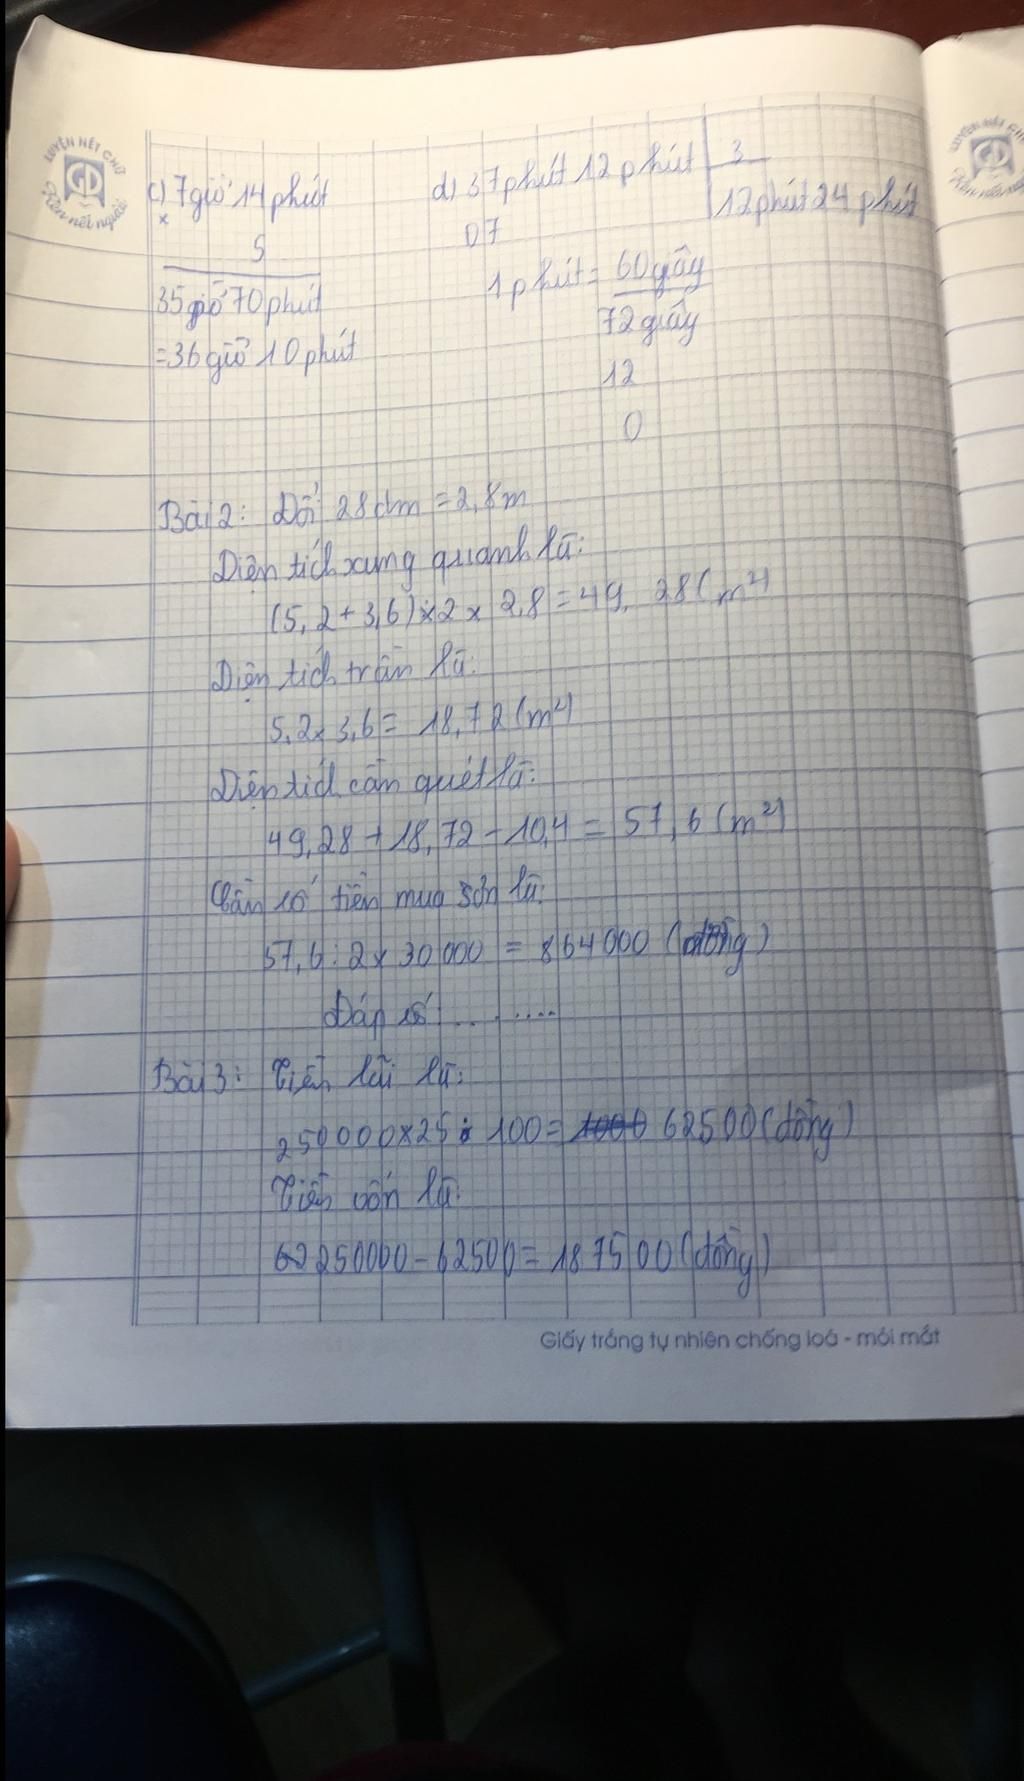 LUYỆN NÉT CHỮ
GD
Rèn nết người
LUYỆN NÉT CHỮ
c) 7 giờ 14 phút
x
5
35 giờ 70 phút
= 36 giờ 10 phút
d) 37 phút 12 phút | 3
07 12 phút 24 phút
1 phút = 60 giây
72 giây
12
0
Bài 2: Đổi 28 dm = 2,8 m
Diện tích xung quanh là:
(5,2 + 3,6) x 2 x 2,8 = 49,28 (m²)
Diện tích trần là:
5,2 x 3,6 = 18,72 (m²)
Diện tích cần quét là:
49,28 + 18,72 - 10,4 = 57,6 (m²)
Cần số tiền mua sơn là:
57,6 : 2 x 30 000 = 864 000 (đồng)
Đáp số: ........
Bài 3: Tiền lãi là:
250000 x 25 : 100 = 62500 (đồng)
Tiền vốn là:
250000 - 62500 = 187500 (đồng)
Giấy trắng tự nhiên chống loá - mỏi mắt